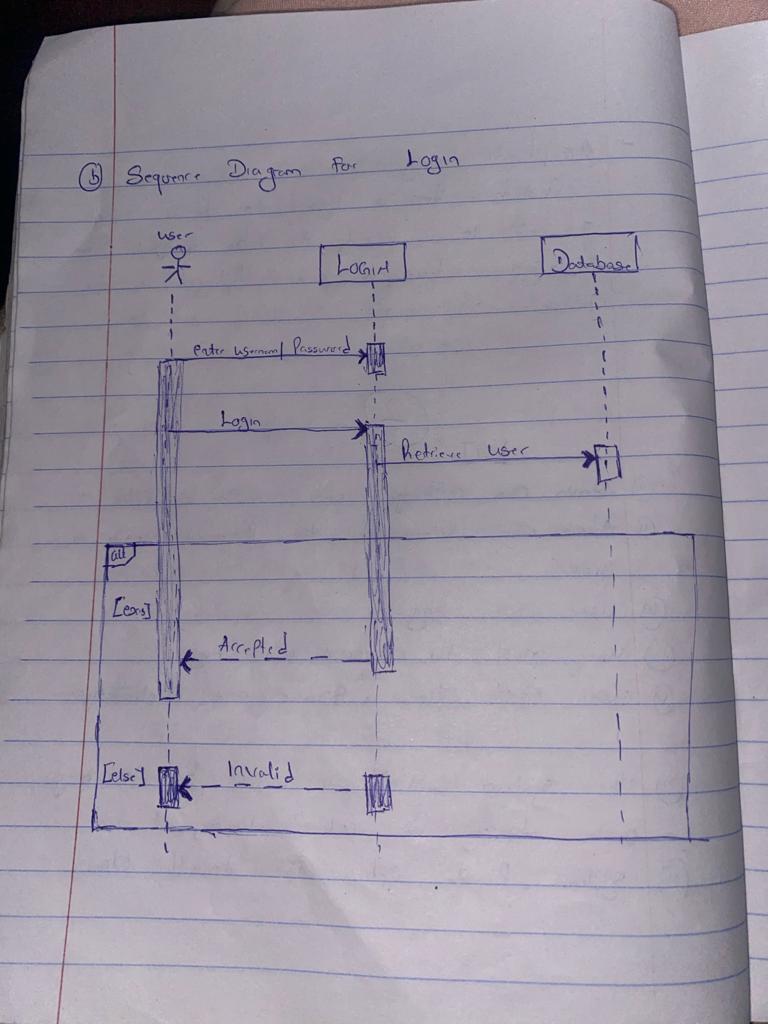 b Sequence Diagram for Login
user
LOGIN
Database
enter usernam/ Password
Login
Retrieve user
alt
Accepted
[else]
Invalid